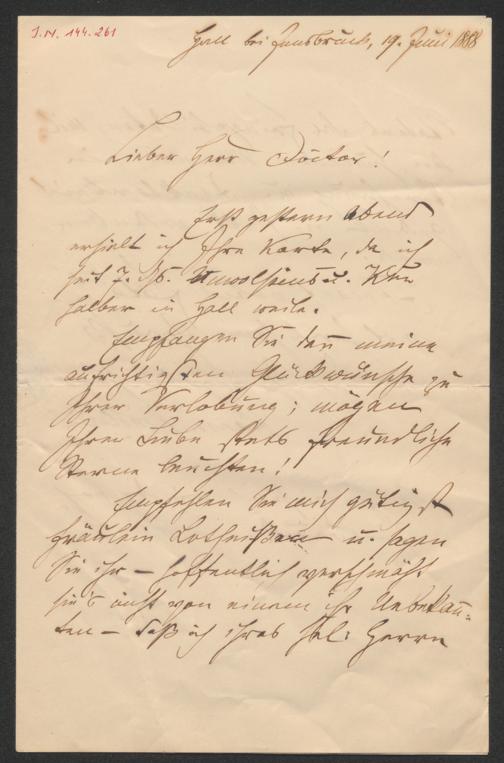 I.N. 144.261
Hall bei Innsbruck, 19. Juni 1888
Lieber Herr Doctor!
Erst gestern Abend
erhielt ich Ihre Karte, da ich
seit 7. ds. Unwohlseins u. Kur
halber in Hall weile.
Empfangen Sie denn meine
aufrichtigsten Glückwünsche zu
Ihrer Verlobung; mögen
Ihrer Liebe stets freundliche
Sterne leuchten!
Empfehlen Sie mich gütigst
Fräulein Lotheißen u. sagen
Sie ihr – hoffentlich verschmäht
sie's nicht von einem ihr Unbekann-
ten – daß ich ihres sel. Herrn